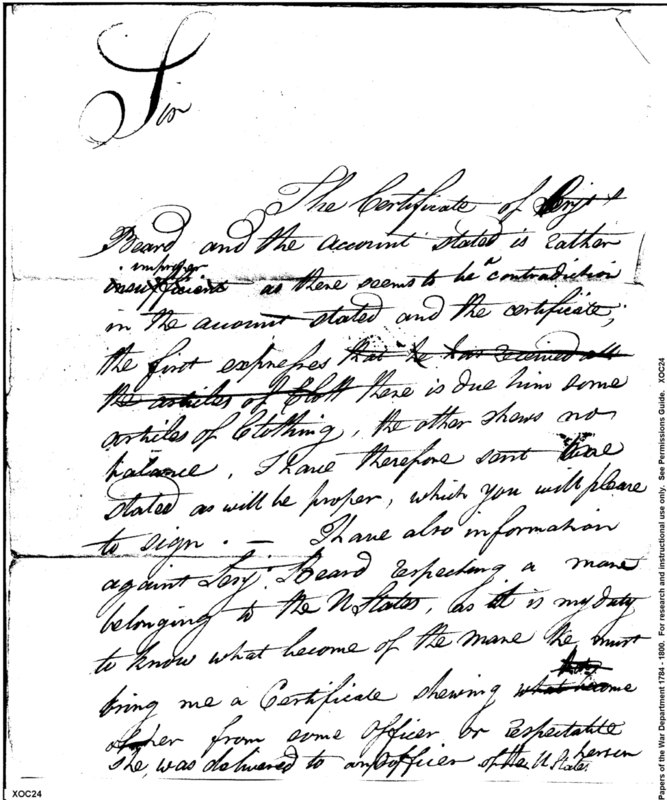 Sir
The Certificate of Serjt
Beard and the account stated is rather
improper
insufficient as there seems to be a contradiction
in the account stated and the certificate,
the first expresses that he has received all
the articles of Cloth there is due him some
articles of Clothing, the other shews no
balance, I have therefore sent one
stated as will be proper, which you will please
to sign. — I have also information
against Serjt. Beard respecting a mare
belonging to the U States, as it is my duty
to know what become of the mare he must
bring me a Certificate shewing what become
of her from some officer or respectable
person
she was delivered to an officer of the U States.
XOC24
Papers of the War Department 1784 - 1800. For research and instructional use only. See Permissions Guide. XOC24